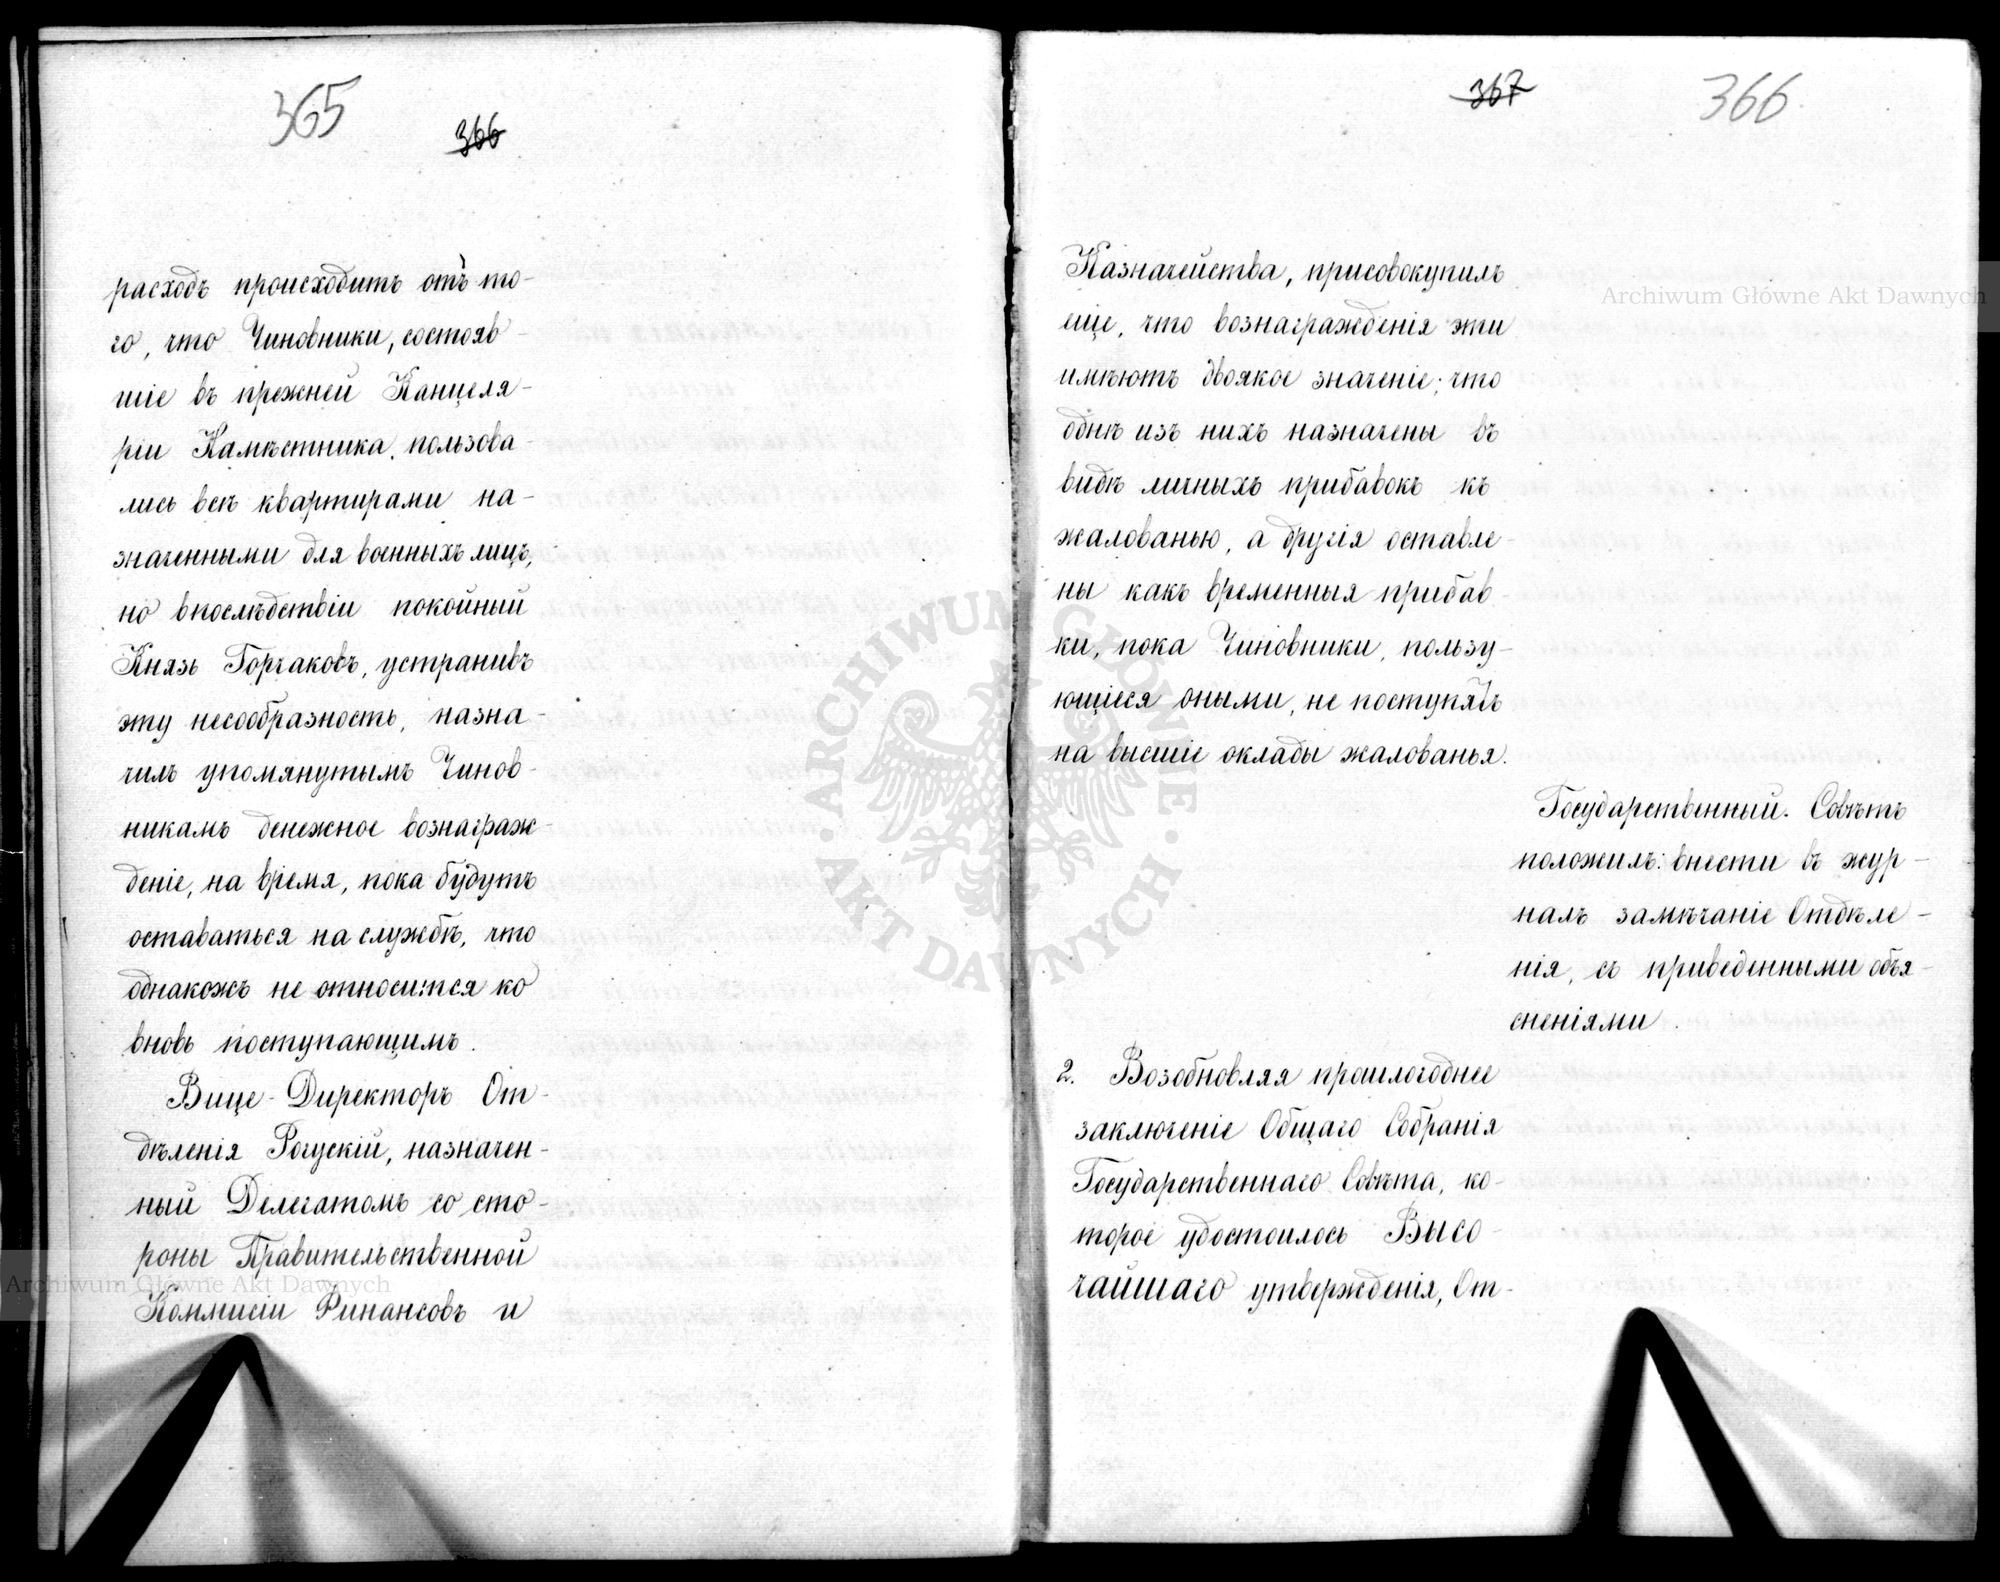 365
366
расходъ происходитъ отъ то-
го, что Чиновники, состояв-
шіе въ прежней Канцеля-
ріи Намѣстника, пользова-
лись всѣ квартирами на-
значенными для военныхъ лицъ,
но впослѣдствіи покойный
Князь Горчаковъ, устранивъ
эту несообразность, назна-
чилъ упомянутымъ Чинов-
никамъ денежное вознаграж-
деніе, на время, пока будутъ
оставаться на службѣ, что
однакожъ не относится ко
вновь поступающимъ.
Вице-Директоръ От-
дѣленія Рогускій, назначен-
ный Делегатомъ со сто-
роны Правительственной
Коммисіи Финансовъ и
367
366
Казначейства, присовокупилъ
еще, что вознагражденія эти
имѣютъ двоякое значеніе; что
однѣ изъ нихъ назначены въ
видѣ личныхъ прибавокъ къ
жалованью, а другія оставле-
ны какъ временныя прибав-
ки, пока Чиновники, пользу-
ющіеся оными, не поступятъ
на высшіе оклады жалованья.
Государственный Совѣтъ
положилъ: внести въ жур-
налъ замѣчаніе Отдѣле-
нія, съ приведенными объя-
сненіями.
2. Возобновляя прошлогоднее
заключеніе Общаго Собранія
Государственнаго Совѣта, ко-
торое удостоилось Высо-
чайшаго утвержденія, От-
Archiwum Główne Akt Dawnych
Archiwum Główne Akt Dawnych
ARCHIWUM GŁÓWNE · AKT DAWNYCH ·